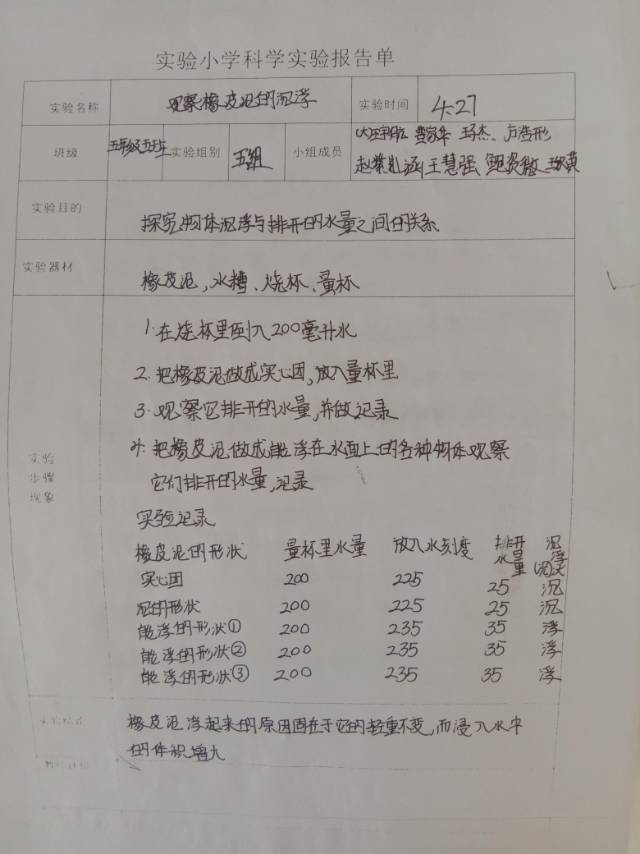 实验小学科学实验报告单
实验名称 观察橡皮泥的沉浮 实验时间 4.27
班级 五年级五班 实验组别 五组 小组成员
赵紫涵 王慧强
实验目的 探究物体沉浮与排开的水量之间的关系
实验器材 橡皮泥,水槽、烧杯、量杯
1.在烧杯里倒入200毫升水
2.把橡皮泥做成实心团,放入量杯里
3.观察它排开的水量,并做记录
4.把橡皮泥做成能浮在水面上的各种物体观察
它们排开的水量,记录
实验
步骤
现象
实验记录
橡皮泥的形状 量杯里水量 放入水刻度 排开水量 沉浮
实心团 200 225 25 沉
泥的形状 200 225 25 沉
能浮的形状① 200 235 35 浮
能浮的形状② 200 235 35 浮
能浮的形状③ 200 235 35 浮
橡皮泥浮起来的原因因在于它的轻重不变,而浸入水中
的体积增大